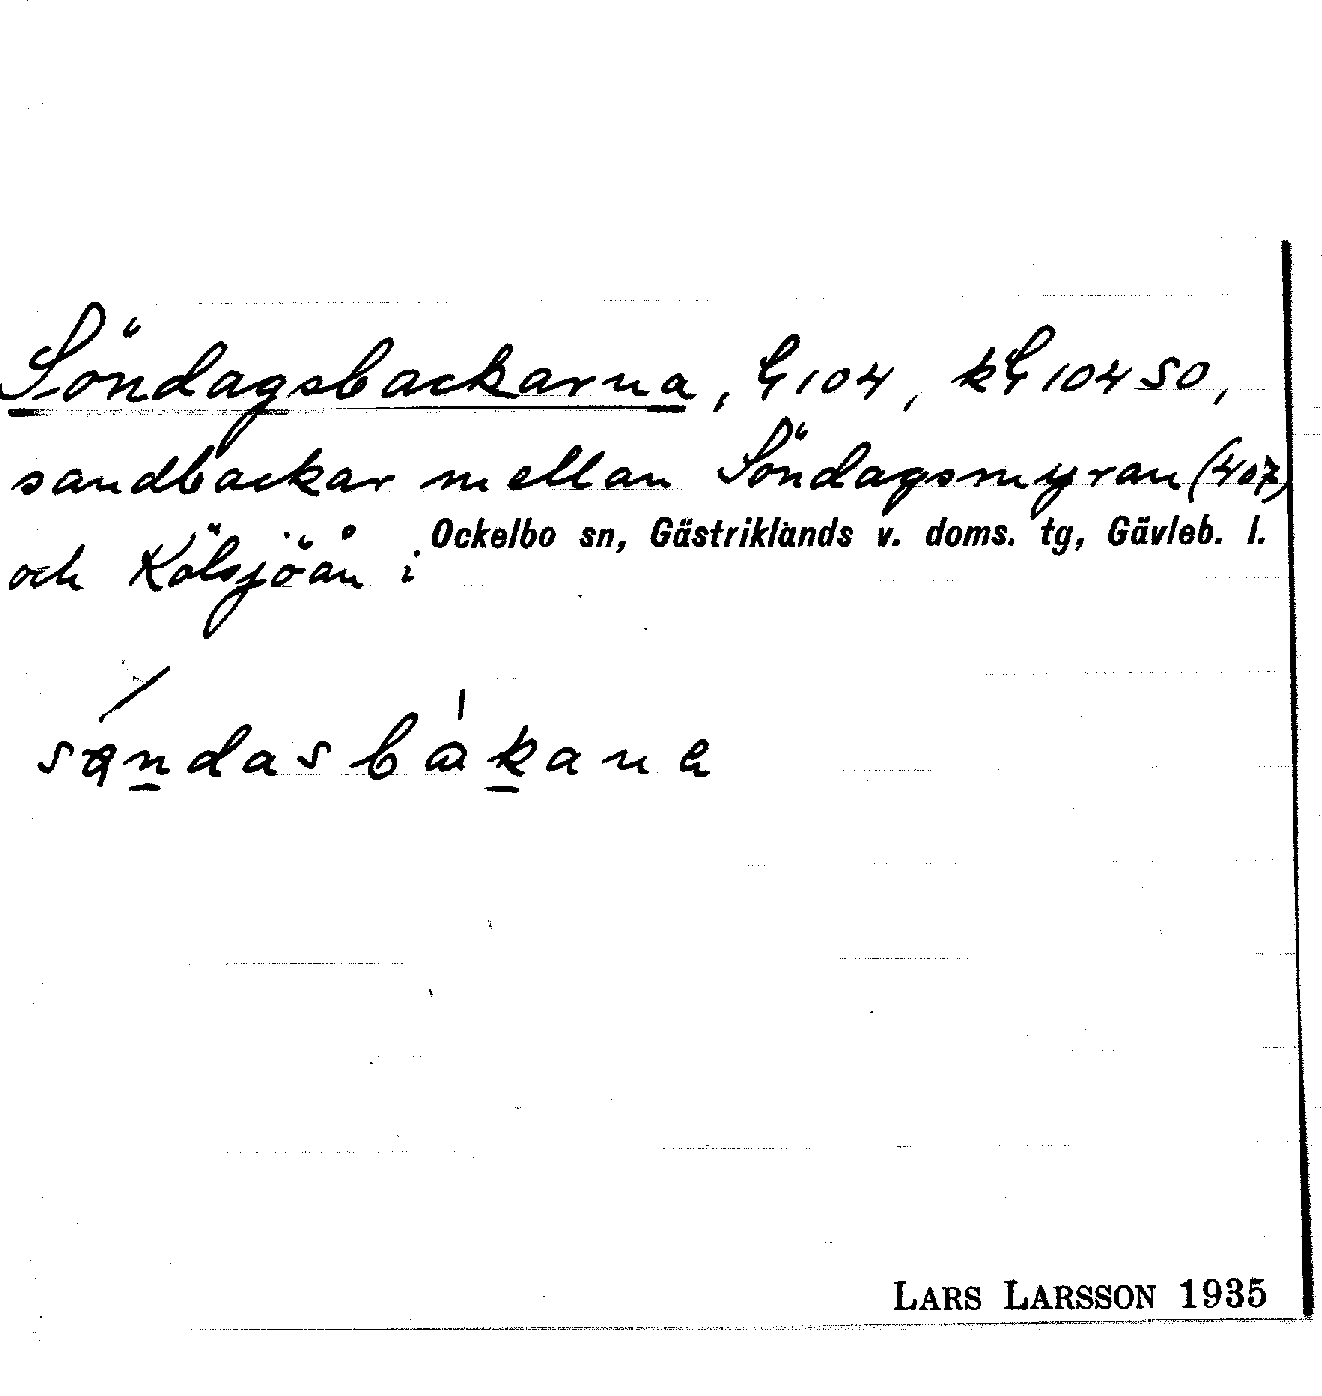 Söndagsbackarna, G 104, kG 104 50,
sandbackar mellan Söndagsmyran (407)
och Kölsjöån i Ockelbo sn, Gästriklands v. doms. tg, Gävleb. l.
LARS LARSSON 1935